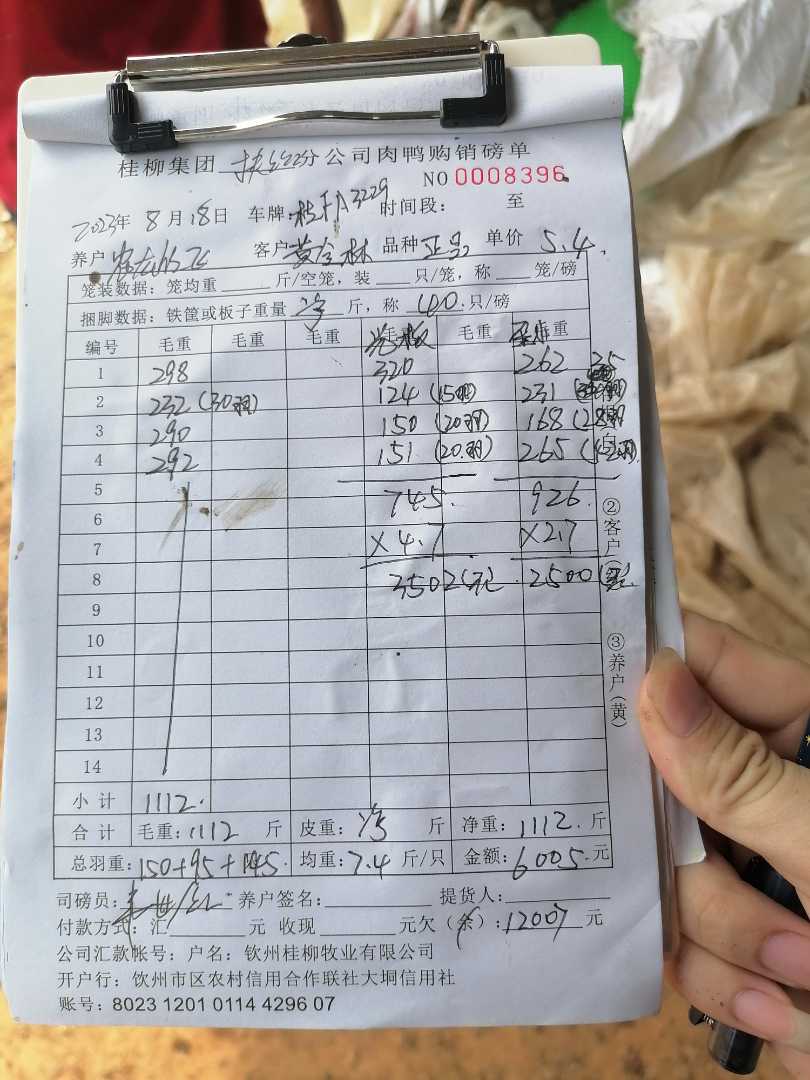 桂柳集团 分公司肉鸭购销磅单
NO 0008396
2023年 8月18日 车牌: 3229 时间段: 至
养户: 客户: 黄全林 品种 正品 单价 5.4
笼装数据: 笼均重 斤/空笼, 装 只/笼, 称 笼/磅
捆脚数据: 铁筐或板子重量 净 斤, 称 40 只/磅
编号 毛重 毛重 毛重 毛重 毛重 毛重
1 298 320 262
2 232 (30羽) 124 (15羽) 231
3 290 150 (20羽) 168 (28羽)
4 292 151 (20羽) 265
5 745 926
6
7 ×4.7 ×2.7
8 3502(元) 2500
9
10
11
12
13
14
小计 1112
合计 毛重: 1112 斤 皮重: 净 斤 净重: 1112 斤
总羽重: 150+95+145 均重: 7.4 斤/只 金额: 6005 元
司磅员: 养户签名: 提货人:
付款方式: 汇 元 收现 元欠 (余): 12007 元
公司汇款帐号: 户名: 钦州桂柳牧业有限公司
开户行: 钦州市区农村信用合作联社大垌信用社
账号: 8023 1201 0114 4296 07
②客户
③养户(黄)